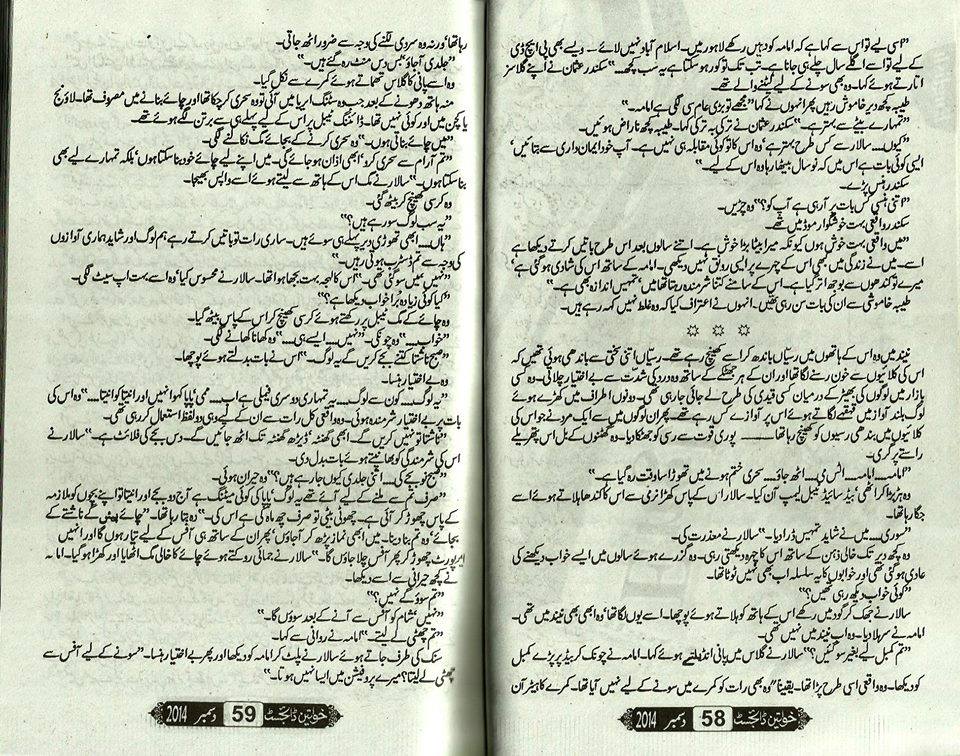 ”اسی لیے تو اس سے کہا ہے کہ امامہ کو وہیں رکھے لاہور میں۔ اسلام آباد نہیں لائے۔ ویسے بھی پی ایچ ڈی
کے لیے تو اسے اگلے سال چلے ہی جانا ہے۔ تب تک تو کور ہو سکتا ہے یہ سب کچھ۔“ سکندر عثمان نے اپنے گلاسز
اتارتے ہوئے کہا۔ وہ بھی سونے کے لیے لیٹنے والے تھے۔
طیبہ کچھ دیر خاموش رہیں پھر انہوں نے کہا ”مجھے تو بڑی عام سی لگی ہے امامہ۔“
”تمہارے بیٹے سے بہتر ہے۔“ سکندر عثمان نے ترکی بہ ترکی کہا۔ طیبہ کچھ ناراض ہوئیں۔
”کیوں.... سالار سے کس طرح بہتر ہے‘ وہ اس کا تو کوئی مقابلہ ہی نہیں ہے۔ آپ خود ایمان داری سے بتائیں‘
ایسی کوئی بات ہے اس میں کہ نو سال بیٹھا رہا وہ اس کے لیے۔“
سکندر ہنس پڑے۔
”اتنی ہنسی کس بات پر آ رہی ہے آپ کو؟“ وہ چڑیں۔
سکندر واقعی بہت خوشگوار موڈ میں تھے۔
”میں واقعی بہت خوش ہوں کیونکہ میرا بیٹا بڑا خوش ہے۔ اتنے سالوں بعد اس طرح باتیں کرتے دیکھا ہے
اسے۔ میں نے زندگی میں کبھی اس کے چہرے پر ایسی رونق نہیں دیکھی۔ امامہ کے ساتھ اس کی شادی ہو گئی ہے‘
میرے تو کندھوں سے بوجھ اتر گیا ہے۔ اس کے سامنے کتنا شرمندہ رہتا تھا میں‘ تمہیں اندازہ بھی ہے۔“
طیبہ خاموشی سے ان کی بات سن رہی تھیں۔ انہوں نے اعتراف کیا کہ وہ غلط نہیں کہہ رہے ہیں۔
☼ ☼ ☼
نیند میں وہ اس کے ہاتھوں میں رسیاں باندھ کر اسے کھینچ رہے تھے۔ رسیاں اتنی سختی سے باندھی ہوئی تھیں کہ
اس کی کلائیوں سے خون رسنے لگا تھا اور ان کے ہر جھٹکے کے ساتھ وہ درد کی شدت سے بے اختیار چلاتی۔ وہ کسی
بازار میں لوگوں کی بھیڑ کے درمیان کسی قیدی کی طرح لے جائی جا رہی تھی۔ دونوں اطراف میں کھڑے ہوئے
لوگ بلند آواز میں قہقہے لگاتے ہوئے اس پر آوازے کس رہے تھے۔ پھر ان لوگوں میں سے ایک مرد نے جو اس کی
کلائیوں میں بندھی رسیوں کو کھینچ رہا تھا.... پوری قوت سے رسی کو جھٹکا دیا۔ وہ گھٹنوں کے بل اس پتھریلے
راستے پر گری۔
”امامہ.... امامہ.... اٹس می.... اٹھ جاؤ.... سحری ختم ہونے میں تھوڑا سا وقت رہ گیا ہے۔“
وہ ہڑبڑا کر اٹھی‘ بیڈ سائیڈ ٹیبل لیمپ آن کیا۔ سالار اس کے پاس کھڑا نرمی سے اس کا کندھا ہلاتے ہوئے اسے
جگا رہا تھا۔
”سوری.... میں نے شاید تمہیں ڈرا دیا۔“ سالار نے معذرت کی۔
وہ کچھ دیر تک خالی ذہن کے ساتھ اس کا چہرہ دیکھتی رہی۔ وہ گزرے ہوئے سالوں میں ایسے خواب دیکھنے کی
عادی ہو گئی تھی اور خوابوں کا یہ سلسلہ اب بھی نہیں ٹوٹا تھا۔
”کوئی خواب دیکھ رہی تھیں؟“
سالار نے جھک کر گود میں رکھے اس کے ہاتھ کو ہلاتے ہوئے پوچھا۔ اسے یوں لگا تھا‘ وہ ابھی بھی نیند میں تھی۔
امامہ نے سر ہلا دیا۔ وہ اب نیند میں نہیں تھی۔
”تم کمبل لیے بغیر سو گئیں؟“ سالار نے گلاس میں پانی انڈیلتے ہوئے کہا۔ امامہ نے چونک کر بیڈ پر پڑے کمبل
کو دیکھا۔ وہ واقعی اسی طرح پڑا تھا۔ یقیناً“ وہ بھی رات کو کمرے میں سونے کے لیے نہیں آیا تھا۔ کمرے کا ہیٹر آن
خواتین ڈائجسٹ 58 دسمبر 2014
رہا تھا‘ ورنہ وہ سردی لگنے کی وجہ سے ضرور اٹھ جاتی۔
”جلدی آ جاؤ‘ بس دس منٹ رہ گئے ہیں۔“
وہ اسے پانی کا گلاس تھماتے ہوئے کمرے سے نکل گیا۔
منہ ہاتھ دھونے کے بعد جب وہ سٹنگ ایریا میں آئی تو وہ سحری کر چکا تھا اور چائے بنانے میں مصروف تھا۔ لاؤنج
یا کچن میں اور کوئی نہیں تھا۔ ڈائننگ ٹیبل پر اس کے لیے پہلے ہی سے برتن لگے ہوئے تھے۔
”میں چائے بناتی ہوں۔“ وہ سحری کرنے کے بجائے مگ نکالنے لگی۔
”تم آرام سے سحری کرو‘ ابھی اذان ہو جائے گی۔ میں اپنے لیے چائے خود بنا سکتا ہوں‘ بلکہ تمہارے لیے بھی
بنا سکتا ہوں۔“ سالار نے مگ اس کے ہاتھ سے لیتے ہوئے اسے واپس بھیجا۔
وہ کرسی کھینچ کر بیٹھ گئی۔
”یہ سب لوگ سو رہے ہیں؟“
”ہاں.... ابھی تھوڑی دیر پہلے ہی سوئے ہیں۔ ساری رات تو باتیں کرتے رہے ہم لوگ اور شاید ہماری آوازوں
کی وجہ سے تم ڈسٹرب ہوتی رہیں۔“
”نہیں‘ میں سو گئی تھی۔“ اس کا لہجہ بہت بجھا ہوا تھا۔ سالار نے محسوس کیا‘ وہ اسے بہت اپ سیٹ لگی۔
”کیا کوئی زیادہ برا خواب دیکھا ہے؟“
وہ چائے کے مگ ٹیبل پر رکھتے ہوئے کرسی کھینچ کر اس کے پاس بیٹھ گیا۔
”خواب....“ وہ چونکی۔ ”نہیں.... ایسے ہی....“ وہ کھانا کھانے لگی۔
”صبح ناشتا کتنے بجے کریں گے یہ لوگ۔“ اس نے بات بدلتے ہوئے پوچھا۔
وہ بے اختیار ہنسا۔
”یہ لوگ.... کون سے لوگ.... یہ تمہاری دوسری فیملی ہے اب.... ممی‘ پاپا کہو انہیں اور انیتا کو انیتا....“ وہ اس کی
بات پر بے اختیار شرمندہ ہوئی۔ وہ واقعی کل رات سے ان کے لیے وہی دو لفظ استعمال کر رہی تھی۔
”ناشتا تو نہیں کریں گے۔ ابھی گھنٹہ‘ ڈیڑھ گھنٹہ تک اٹھ جائیں گے۔ دس بجے کی فلائٹ ہے۔“ سالار نے
اس کی شرمندگی کو بھانپتے ہوئے بات بدل دی۔
”صبح نو بجے کی.... اتنی جلدی کیوں جا رہے ہیں؟“ وہ حیران ہوئی۔
”صرف تم سے ملنے کے لیے آئے تھے یہ لوگ‘ پاپا کی کوئی میٹنگ ہے آج دو بجے اور انیتا تو اپنے بچوں کو ملازمہ
کے پاس چھوڑ کر آئی ہے۔ چھوٹی بیٹی تو صرف چھ ماہ کی ہے اس کی۔“ وہ بتا رہا تھا۔ ”چائے پئیں گے ناشتے کے
بجائے‘ وہ تم بنا دینا۔ میں ابھی نماز پڑھ کر آ جاؤں‘ پھر ان کے ساتھ ہی آفس کے لیے تیار ہوں گا اور انہیں
ایئرپورٹ چھوڑ کر پھر آفس چلا جاؤں گا۔“ سالار نے جمائی روکتے ہوئے چائے کا خالی مگ اٹھایا اور کھڑا ہو گیا۔ امامہ
نے کچھ حیرانی سے اسے دیکھا۔
”تم سوؤ گے نہیں؟“
”نہیں‘ شام کو آفس سے آنے کے بعد سوؤں گا۔“
”تم چھٹی لے لیتے۔“ امامہ نے روانی سے کہا۔
سنک کی طرف جاتے ہوئے سالار نے پلٹ کر امامہ کو دیکھا اور پھر بے اختیار ہنسا۔ ”سونے کے لیے آفس سے
چھٹی لے لیتا؟ میرے پروفیشن میں ایسا نہیں ہوتا۔“
خواتین ڈائجسٹ 59 دسمبر 2014